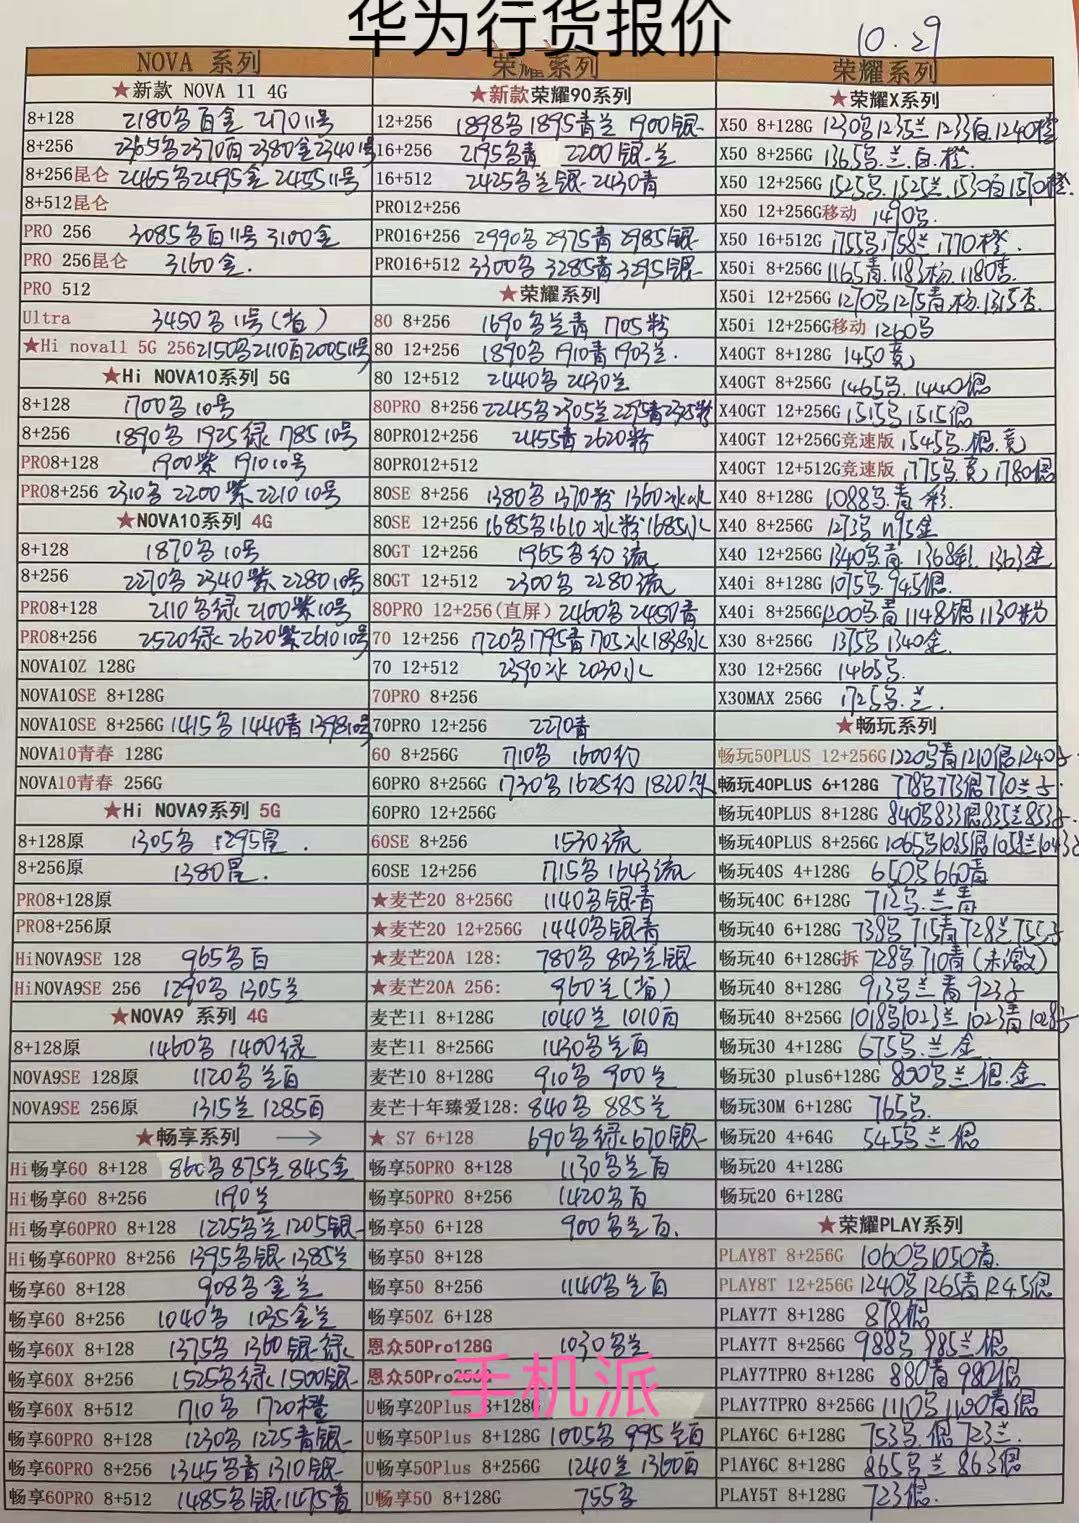 华为行货报价
10.29
NOVA 系列
★新款 NOVA 11 4G
8+128 2180名白金 2170 11号
8+256 2365名2370白2380金2340 11号
8+256昆仑 2465名2495金2455 11号
8+512昆仑
PRO 256 3085名白11号 3100金
PRO 256昆仑 3160金.
PRO 512
Ultra 3450名11号(省)
★Hi nova11 5G 256 2150名2110白2005 11号
★Hi NOVA10系列 5G
8+128 1700名10号
8+256 1890名 1925绿 1785 10号
PRO8+128 1900紫 1910 10号
PRO8+256 2310名 2200紫 2210 10号
★NOVA10系列 4G
8+128 1870名10号
8+256 2270名 2340紫 2280 10号
PRO8+128 2110名绿 2100紫10号
PRO8+256 2520绿 2620紫 2610 10号
NOVA10Z 128G
NOVA10SE 8+128G
NOVA10SE 8+256G 1415名 1440青 1398 10号
NOVA10青春 128G
NOVA10青春 256G
★Hi NOVA9系列 5G
8+128原 1305名 1295昆.
8+256原 1380昆.
PRO8+128原
PRO8+256原
HiNOVA9SE 128 965名白
HiNOVA9SE 256 1290名 1305兰
★NOVA9 系列 4G
8+128原 1460名 1400绿
NOVA9SE 128原 1120名兰白
NOVA9SE 256原 1315兰 1285白
★畅享系列 →
Hi畅享60 8+128 860名 875兰 845金
Hi畅享60 8+256 1190兰
Hi畅享60PRO 8+128 1225名兰 1205银
Hi畅享60PRO 8+256 1395名银 1385兰
畅享60 8+128 908名金兰
畅享60 8+256 1040名 1035金兰
畅享60X 8+128 1375名 1360银绿
畅享60X 8+256 1525名绿 1500银
畅享60X 8+512 1710名 1720橙
畅享60PRO 8+128 1230名 1225青银
畅享60PRO 8+256 1345名青 1310银
畅享60PRO 8+512 1485名银 1475青
荣耀系列
★新款荣耀90系列
12+256 1898名 1895青兰 1900银
16+256 2195名青 2200银兰
16+512 2425名兰银 2430青
PRO12+256
PRO16+256 2990名 2975青 2985银
PRO16+512 3300名 3285青 3295银
★荣耀系列
80 8+256 1690名兰青 1705粉
80 12+256 1890名 1910青 1903兰.
80 12+512 2440名 2430兰
80PRO 8+256 2245名2305兰2295青2325粉
80PRO12+256 2455青 2620粉
80PRO12+512
80SE 8+256 1380名 1370粉 1360冰水
80SE 12+256 1685名 1610冰粉 1685水
80GT 12+256 1965名幻流
80GT 12+512 2300名 2280流
80PRO 12+256(直屏) 2460名 2450青
70 12+256 1720名1795青1705冰1838水
70 12+512 2390冰 2030水
70PRO 8+256
70PRO 12+256 2270青
60 8+256G 1710名 1600幻
60PRO 8+256G 1730名 1625幻 1820
60PRO 12+256G
60SE 8+256 1530流
60SE 12+256 1715名 1643流
★麦芒20 8+256G 1140名银青
★麦芒20 12+256G 1440名银青
★麦芒20A 128: 780名 803兰银
★麦芒20A 256: 960兰(省)
麦芒11 8+128G 1040兰 1010白
麦芒11 8+256G 1430名兰白
麦芒10 8+128G 910名 900兰
麦芒十年臻爱128: 840名 885兰
★ S7 6+128 690名绿 670银
畅享50PRO 8+128 1130名兰白
畅享50PRO 8+256 1420名白
畅享50 6+128 900名兰白.
畅享50 8+128
畅享50 8+256 1140名兰白
畅享50Z 6+128
恩众50Pro128G 1030名兰
恩众50Pro256G
U畅享20Plus 8+128G
U畅享50Plus 8+128G 1005名 995兰白
U畅享50Plus 8+256G 1240兰 1360白
U畅享50 8+128G 755名
荣耀系列
★荣耀X系列
X50 8+128G 1230名1235兰1233白1240橙
X50 8+256G 1365名.兰.白.橙.
X50 12+256G 1525名.1525兰.1530白1570橙.
X50 12+256G移动 1490名.
X50 16+512G 1755名1758兰1770橙.
X50i 8+256G 1165青.1183杨.1180杏.
X50i 12+256G 1270名1275青.杨.1315杏.
X50i 12+256G移动 1260名
X40GT 8+128G 1450竞
X40GT 8+256G 1465名.1440银
X40GT 12+256G 1515名1515银
X40GT 12+256G竞速版 1545名.银.竞
X40GT 12+512G竞速版 1775名.竞 1780银
X40 8+128G 1088名.青.彩.
X40 8+256G 1273名 1195金
X40 12+256G 1340名青 1368彩. 1363金
X40i 8+128G 1075名.945银.
X40i 8+256G 1200名.青1148银1130粉
X30 8+256G 1375名1340金.
X30 12+256G 1465名.
X30MAX 256G 1725名.兰.
★畅玩系列
畅玩50PLUS 12+256G 1220名青1210银1240子
畅玩40PLUS 6+128G 778名773银770兰子.
畅玩40PLUS 8+128G 840名833银835兰853子.
畅玩40PLUS 8+256G 1065名1035银1058兰1043子
畅玩40S 4+128G 650名660青
畅玩40C 6+128G 712名.兰青
畅玩40 6+128G 738名715青728兰755子
畅玩40 6+128G拆 728名710青(未激)
畅玩40 8+128G 913名兰青 923子
畅玩40 8+256G 1018名1023兰 1023青1028子
畅玩30 4+128G 675名.兰金
畅玩30 plus6+128G 800名兰银.金
畅玩30M 6+128G 765名.
畅玩20 4+64G 545名兰银
畅玩20 4+128G
畅玩20 6+128G
★荣耀PLAY系列
PLAY8T 8+256G 1060名1050青.
PLAY8T 12+256G 1240名1265青1245银
PLAY7T 8+128G 878银
PLAY7T 8+256G 988名 985兰银
PLAY7TPRO 8+128G 880青 980银
PLAY7TPRO 8+256G 1110名 1100青银
PLAY6C 6+128G 753名 银 723兰.
PlAY6C 8+128G 865名兰 863银
PLAY5T 8+128G 723银.
手机派